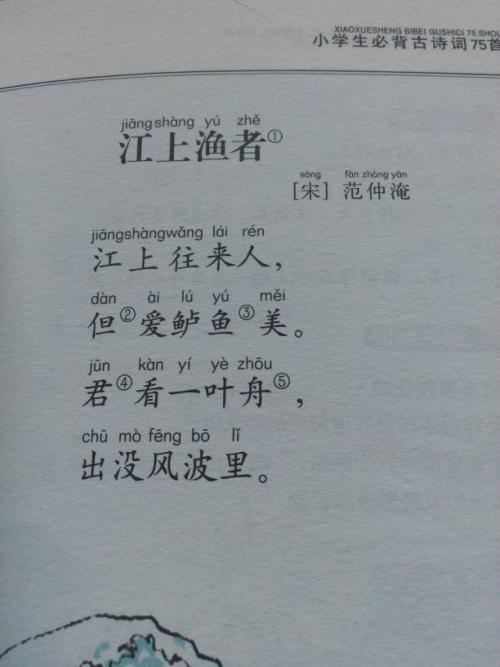 XIAOXUESHENG BIBEI GUSHICI 75 SHOU
小学生必背古诗词75首
jiāng shàng yú zhě
江上渔者①
sòng fàn zhòng yān
[宋] 范仲淹
jiāngshàngwǎng lái rén
江上往来人，
dàn ài lú yú měi
但②爱鲈鱼③美。
jūn kàn yí yè zhōu
君④看一叶舟⑤，
chū mò fēng bō lǐ
出没风波里。